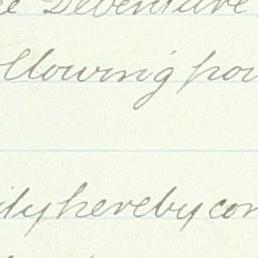 Debenture
ollowing pow
ily hereby con